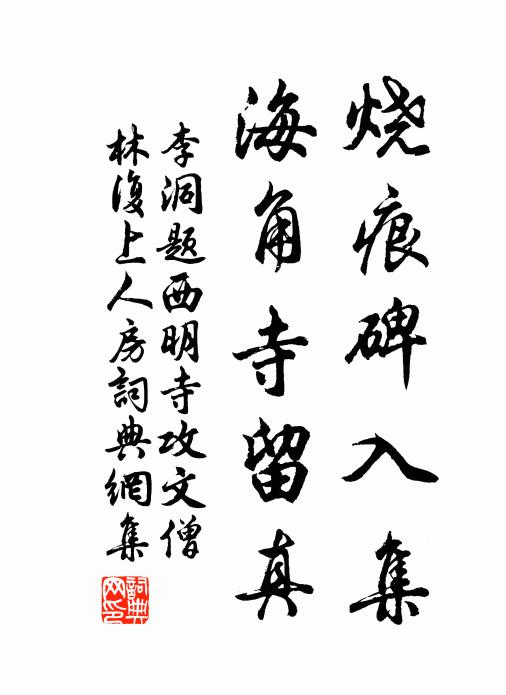 烧痕碑入集
海角寺留真
李洞题西明寺攻文僧
林復上人房詞典網集
詞典网印